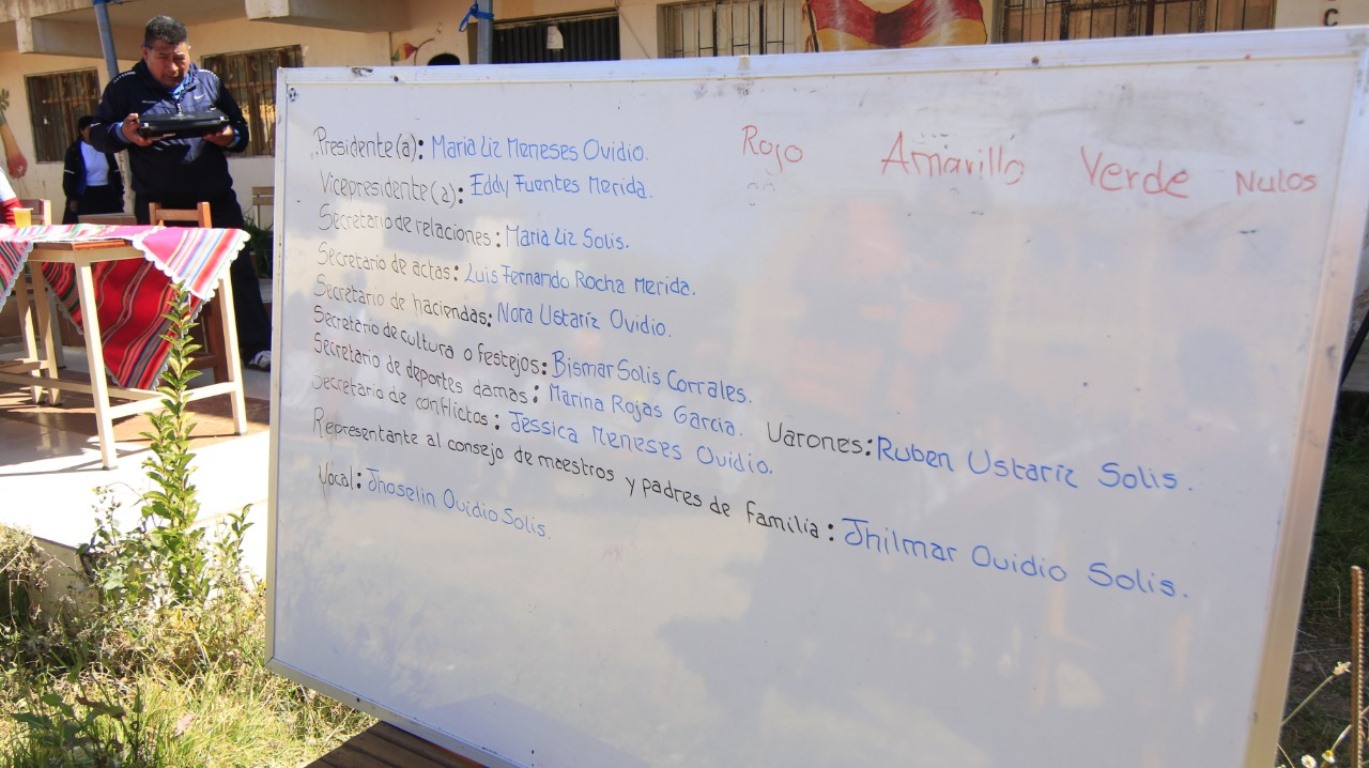 Presidente(a): Maria Liz Meneses Ovidio.
Rojo Amarillo Verde Nulos
Vicepresidente(a): Eddy Fuentes Merida.
Secretario de relaciones: Maria Liz Solis.
Secretario de actas: Luis Fernando Rocha Merida.
Secretario de haciendas: Nora Ustariz Ovidio.
Secretario de cultura o festejos: Bismar Solis Corrales.
Secretario de deportes damas: Marina Rojas Garcia. Varones: Ruben Ustariz Solis.
Secretario de conflictos: Jessica Meneses Ovidio.
Representante al consejo de maestros y padres de familia: Jhilmar Ovidio Solis.
Vocal: Jhoselin Ovidio Solis.